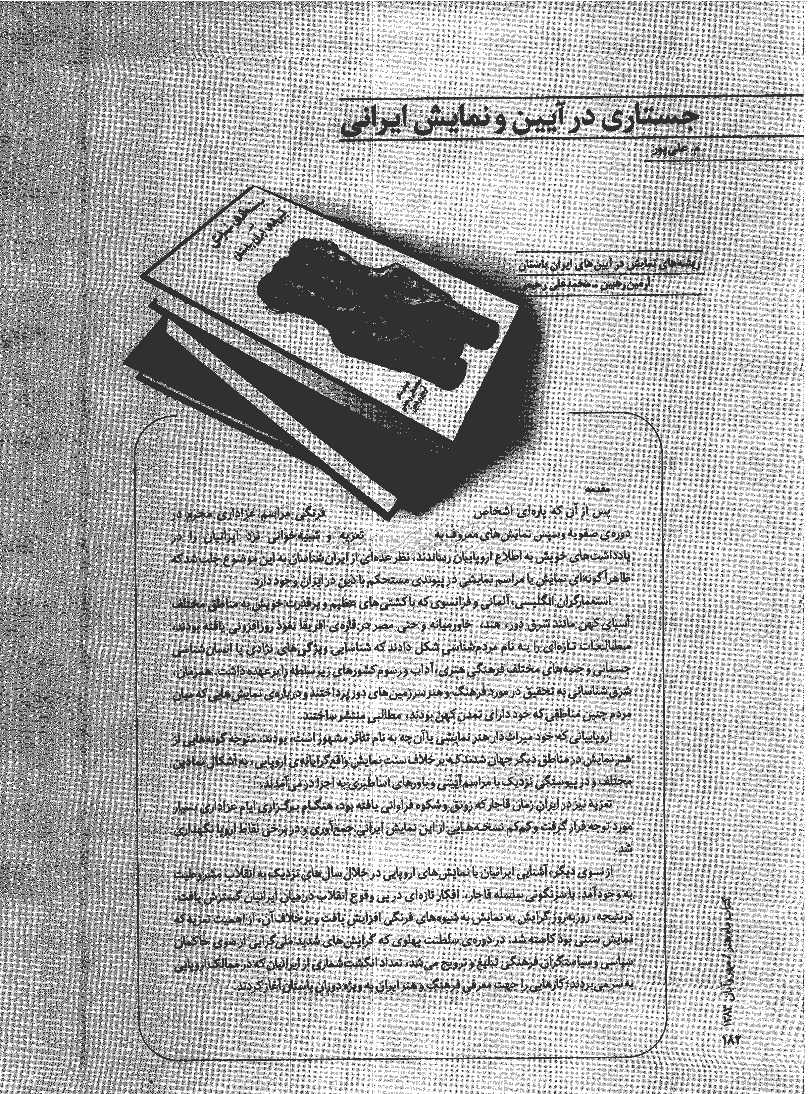 جستاری در آیین و نمایش ایرانی
م. علی‌پور
ریشه‌های نمایش در آیین‌های ایران باستان
آرمین رحیمی ـ محمدعلی رحیمی
مقدمه
پس از آن که پاره‌ای اشخاص فرنگی مراسم عزاداری محرم در
دوره‌ی صفویه و سپس نمایش‌های معروف به تعزیه و شبیه‌خوانی نزد ایرانیان را در
یادداشت‌های خویش به اطلاع اروپاییان رساندند، نظر عده‌ای از ایران‌شناسان به این موضوع جلب شد که
ظاهراً گونه‌ای نمایش یا مراسم نمایشی در پیوندی مستحکم با دین در ایران وجود دارد.
استعمارگران انگلیسی، آلمانی و فرانسوی که با کشتی‌های عظیم و پرقدرت خویش به مناطق مختلف
آسیای کهن مانند شرق دور، هند، خاورمیانه و حتی مصر در قاره‌ی افریقا نفوذ روزافزونی یافته بودند،
مطالعات تازه‌ای را به نام مردم‌شناسی شکل دادند که شناسایی ویژگی‌های نژادی یا انسان‌شناسی
جسمانی و جنبه‌های مختلف فرهنگی هنری، آداب و رسوم کشورهای زیر سلطه را بر عهده داشت. همزمان،
شرق‌شناسانی به تحقیق در مورد فرهنگ و هنر سرزمین‌های دور پرداختند و درباره‌ی نمایش‌هایی که میان
مردم چنین مناطقی که خود دارای تمدن کهن بودند، مطالبی منتشر ساختند.
اروپاییانی که خود میراث‌دار هنر نمایشی یا آن‌چه به نام تئاتر مشهور است، بودند، متوجه گونه‌هایی از
هنر نمایش در مناطق دیگر جهان شدند که بر خلاف سنت نمایش واقع‌گرایانه‌ی اروپایی، به اشکال نمادین
مختلف و در پیوستگی نزدیک با مراسم آیینی و باورهای اساطیری به اجرا در می‌آمدند.
تعزیه نیز در ایران زمان قاجار که رونق و شکوه فراوانی یافته بود، هنگام برگزاری ایام عزاداری بسیار
مورد توجه قرار گرفت و کم‌کم نسخه‌هایی از این نمایش ایرانی جمع‌آوری و در برخی نقاط اروپا نگهداری
شد.
از سوی دیگر، آشنایی ایرانیان با نمایش‌های اروپایی در خلال سال‌های نزدیک به انقلاب مشروطیت
به وجود آمد. با سرنگونی سلسله قاجار، افکار تازه‌ای در پی وقوع انقلاب در میان ایرانیان گسترش یافت.
در نتیجه، روزبه‌روز گرایش به نمایش به شیوه‌های فرنگی افزایش یافت و بر خلاف آن، از اهمیت تعزیه که
نمایش سنتی بود کاسته شد. در دوره‌ی سلطنت پهلوی که گرایش‌های شدید ملی‌گرایی از سوی حاکمان
سیاسی و سیاستگران فرهنگی تبلیغ و ترویج می‌شد، تعداد انگشت‌شماری از ایرانیان که در ممالک اروپایی
به سر می‌بردند؛ کارهایی را جهت معرفی فرهنگ و هنر ایران به ویژه دوران باستان آغاز کردند.
کتاب ماه هنر / مهر و آبان ۱۳۸۲
۱۸۲